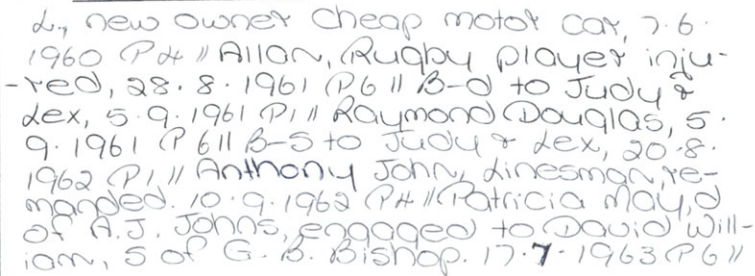 L., new owner cheap motor car, 7.6.
1960 P4 // Allan, Rugby player inju-
-red, 28.8.1961 P6 // B-d to Judy &
Lex, 5.9.1961 P1 // Raymond Douglas, 5.
9.1961 P6 // B-S to Judy & Lex, 20.8.
1962 P1 // Anthony John, Linesman, re-
manded. 10.9.1962 P4 // Patricia May, d
of A.J. Johns, engaged to David Will-
iam, S of G. B. Bishop. 17.7.1963 P6 //